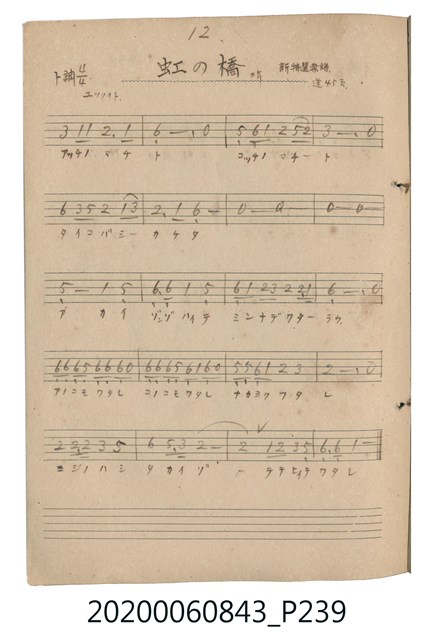 12.
虹の橋
ト調 4/4
3 11 2. 1 | 6 — . 0 | 5 61 2 52 | 3 — . 0
アッチノ マチ ト コッチノ マチー ト
6 35 2 13 | 2. 1 6 — | 0 — 0 — | 0 — 0 —
タイコバシー カケタ
5 — 1 5 | 6. 6 1 5 | 61 23 2 21 | 6 — . 0
ミンナデワター ラウ
6665 6660 | 6665 6160 | 5561 2 3 | 2 — . 0
アノコモワタレ コノコモワタレ ナカヨクワタ レ
2 22 3 5 | 6 5.3 2 — | 2 12 35 | 6. 6 1 —
ニジノハシ タカイゾ ー テテヒイテワタレ
20200060843_P239